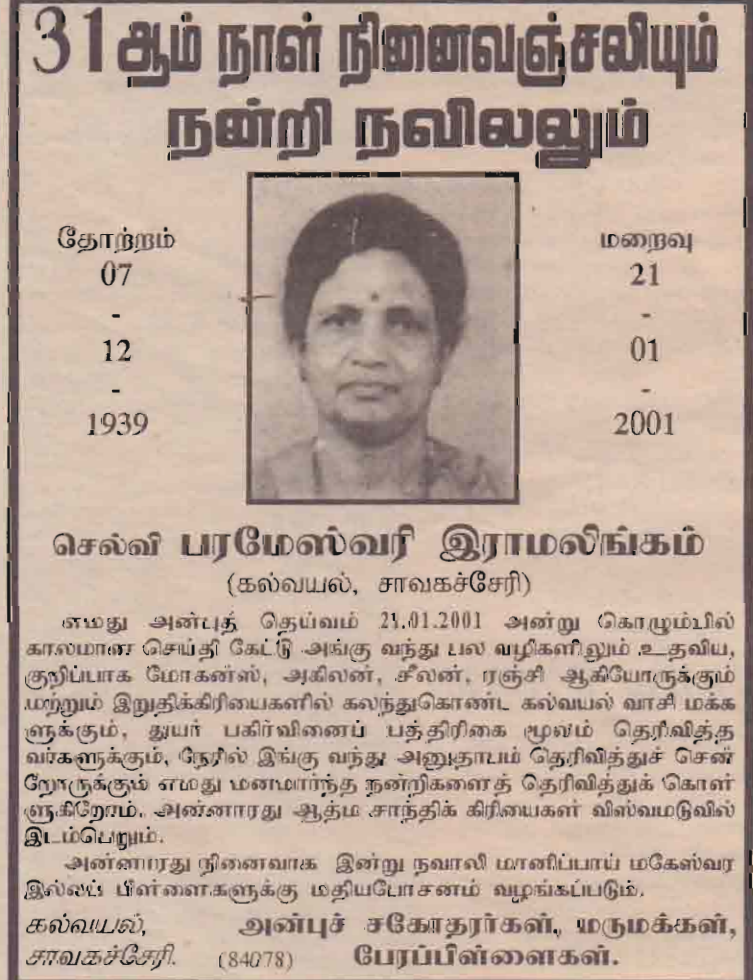 31ஆம் நாள் நினைவஞ்சலியும்
நன்றி நவிலலும்
தோற்றம்
07
-
12
-
1939
மறைவு
21
-
01
-
2001
செல்வி பரமேஸ்வரி இராமலிங்கம்
(கல்வயல், சாவகச்சேரி)
எமது அன்புத் தெய்வம் 21.01.2001 அன்று கொழும்பில்
காலமான செய்தி கேட்டு அங்கு வந்து பல வழிகளிலும் உதவிய,
குறிப்பாக மோகன்ஸ், அகிலன், சீலன், ரஞ்சி ஆகியோருக்கும்
மற்றும் இறுதிக்கிரியைகளில் கலந்துகொண்ட கல்வயல் வாசி மக்க
ளுக்கும், துயர் பகிர்வினைப் பத்திரிகை மூலம் தெரிவித்த
வர்களுக்கும், நேரில் இங்கு வந்து அனுதாபம் தெரிவித்துச் சென்
றோருக்கும் எமது மனமார்ந்த நன்றிகளைத் தெரிவித்துக் கொள்
ளுகிறோம். அன்னாரது ஆத்ம சாந்திக் கிரியைகள் விஸ்வமடுவில்
இடம்பெறும்.
அன்னாரது நினைவாக இன்று நவாலி மானிப்பாய் மகேஸ்வர
இல்லப் பிள்ளைகளுக்கு மதியபோசனம் வழங்கப்படும்.
கல்வயல், அன்புச் சகோதரர்கள், மருமக்கள்,
சாவகச்சேரி. (84078) பேரப்பிள்ளைகள்.